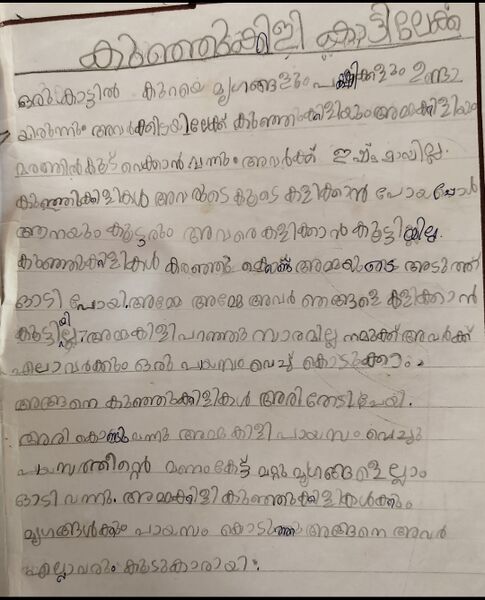 കുഞ്ഞുകിളി കാട്ടിലേക്ക്
ഒരു കാട്ടിൽ കുറയെ മൃഗങ്ങളും പക്ഷികളും ഉണ്ടാ
യിരുന്നു. അവർക്കിടയിലേക്ക് കുഞ്ഞുകിളിയും അമ്മകിളിയും
മരത്തിൽ കൂട് വെക്കാൻ വന്നു. അവർക്ക് ഇഷ്ടമായില്ല.
കുഞ്ഞിക്കിളികൾ അവരുടെ കൂടെ കളിക്കാൻ പോയപ്പോൾ
ആനയും കൂട്ടരും അവരെ കളിക്കാൻ കൂട്ടിയില്ല.
കുഞ്ഞുകിളികൾ കരഞ്ഞു അമ്മയുടെ അടുത്ത്
ഓടി പോയി. അമ്മേ അമ്മേ അവർ ഞങ്ങളെ കളിക്കാൻ
കൂട്ടിയില്ല. അമ്മകിളി പറഞ്ഞു സാരമില്ല നമുക്ക് അവർക്ക്
എലാവർക്കും ഒരു പായസം വെച്ച് കൊടുക്കാം.
അങ്ങനെ കുഞ്ഞുക്കിളികൾ അരി തേടി പേയി.
അരി കൊണ്ടുവന്നു അമ്മകിളി പായസം വെച്ചു
പായസത്തിന്റെ മണം കേട്ട് മറ്റു മൃഗങ്ങളെല്ലാം
ഓടി വന്നു. അമ്മക്കിളി കുഞ്ഞുക്കിളികൾക്കും
മൃഗങ്ങൾക്കും പായസം കൊടുത്തു അങ്ങനെ അവർ
എല്ലാവരും കൂടുകാരായി.